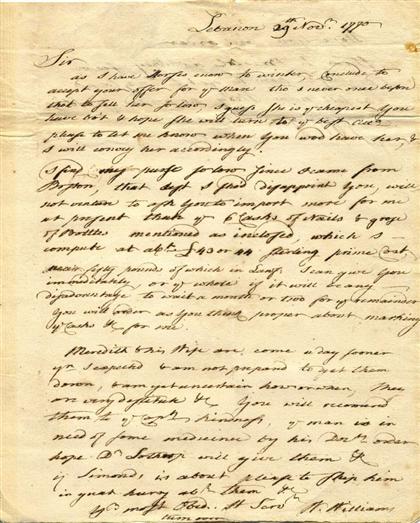 Lebanon 29th Novr. 1770
Sir
as I have Horses enow to winter, Conclude to
accept your offer for ye Mare tho I never once before
that to sell her so low, I guess She is ye cheapest you
have bot & hope She will turn out ye best
please to let me know when you woud have her, &
I will convey her accordingly.
I find my purse so low since I came from
Boston, that lest I shod disappoint you, will
not venture to ask you to import more for me
at present than ye 6 Casks of Nails & groce
of Bottles mentioned as inclosed, which I
compute at abt. £43 or 44 sterling prime Cost,
near fifty pound of which in Lawf. I can give you
immediately, or ye whole if it will be any
disadvantage to wait a month or two for ye remainder
You will order as you think proper about marking
ye Casks &c for me.
Meredith & his Wife are come a day sooner
yn I expected & am not prepared to get them
down, & am yet uncertain how or when, They
are very destitute & You will recommend
them to ye Capts. kindness, ye man is in
need of some medicine by his Drs. order
hope Dr. will give them &c
if Simonds is about please to ship him
in great hurry abt. them &c
yr. most Obed. H Servt.
W. Williams